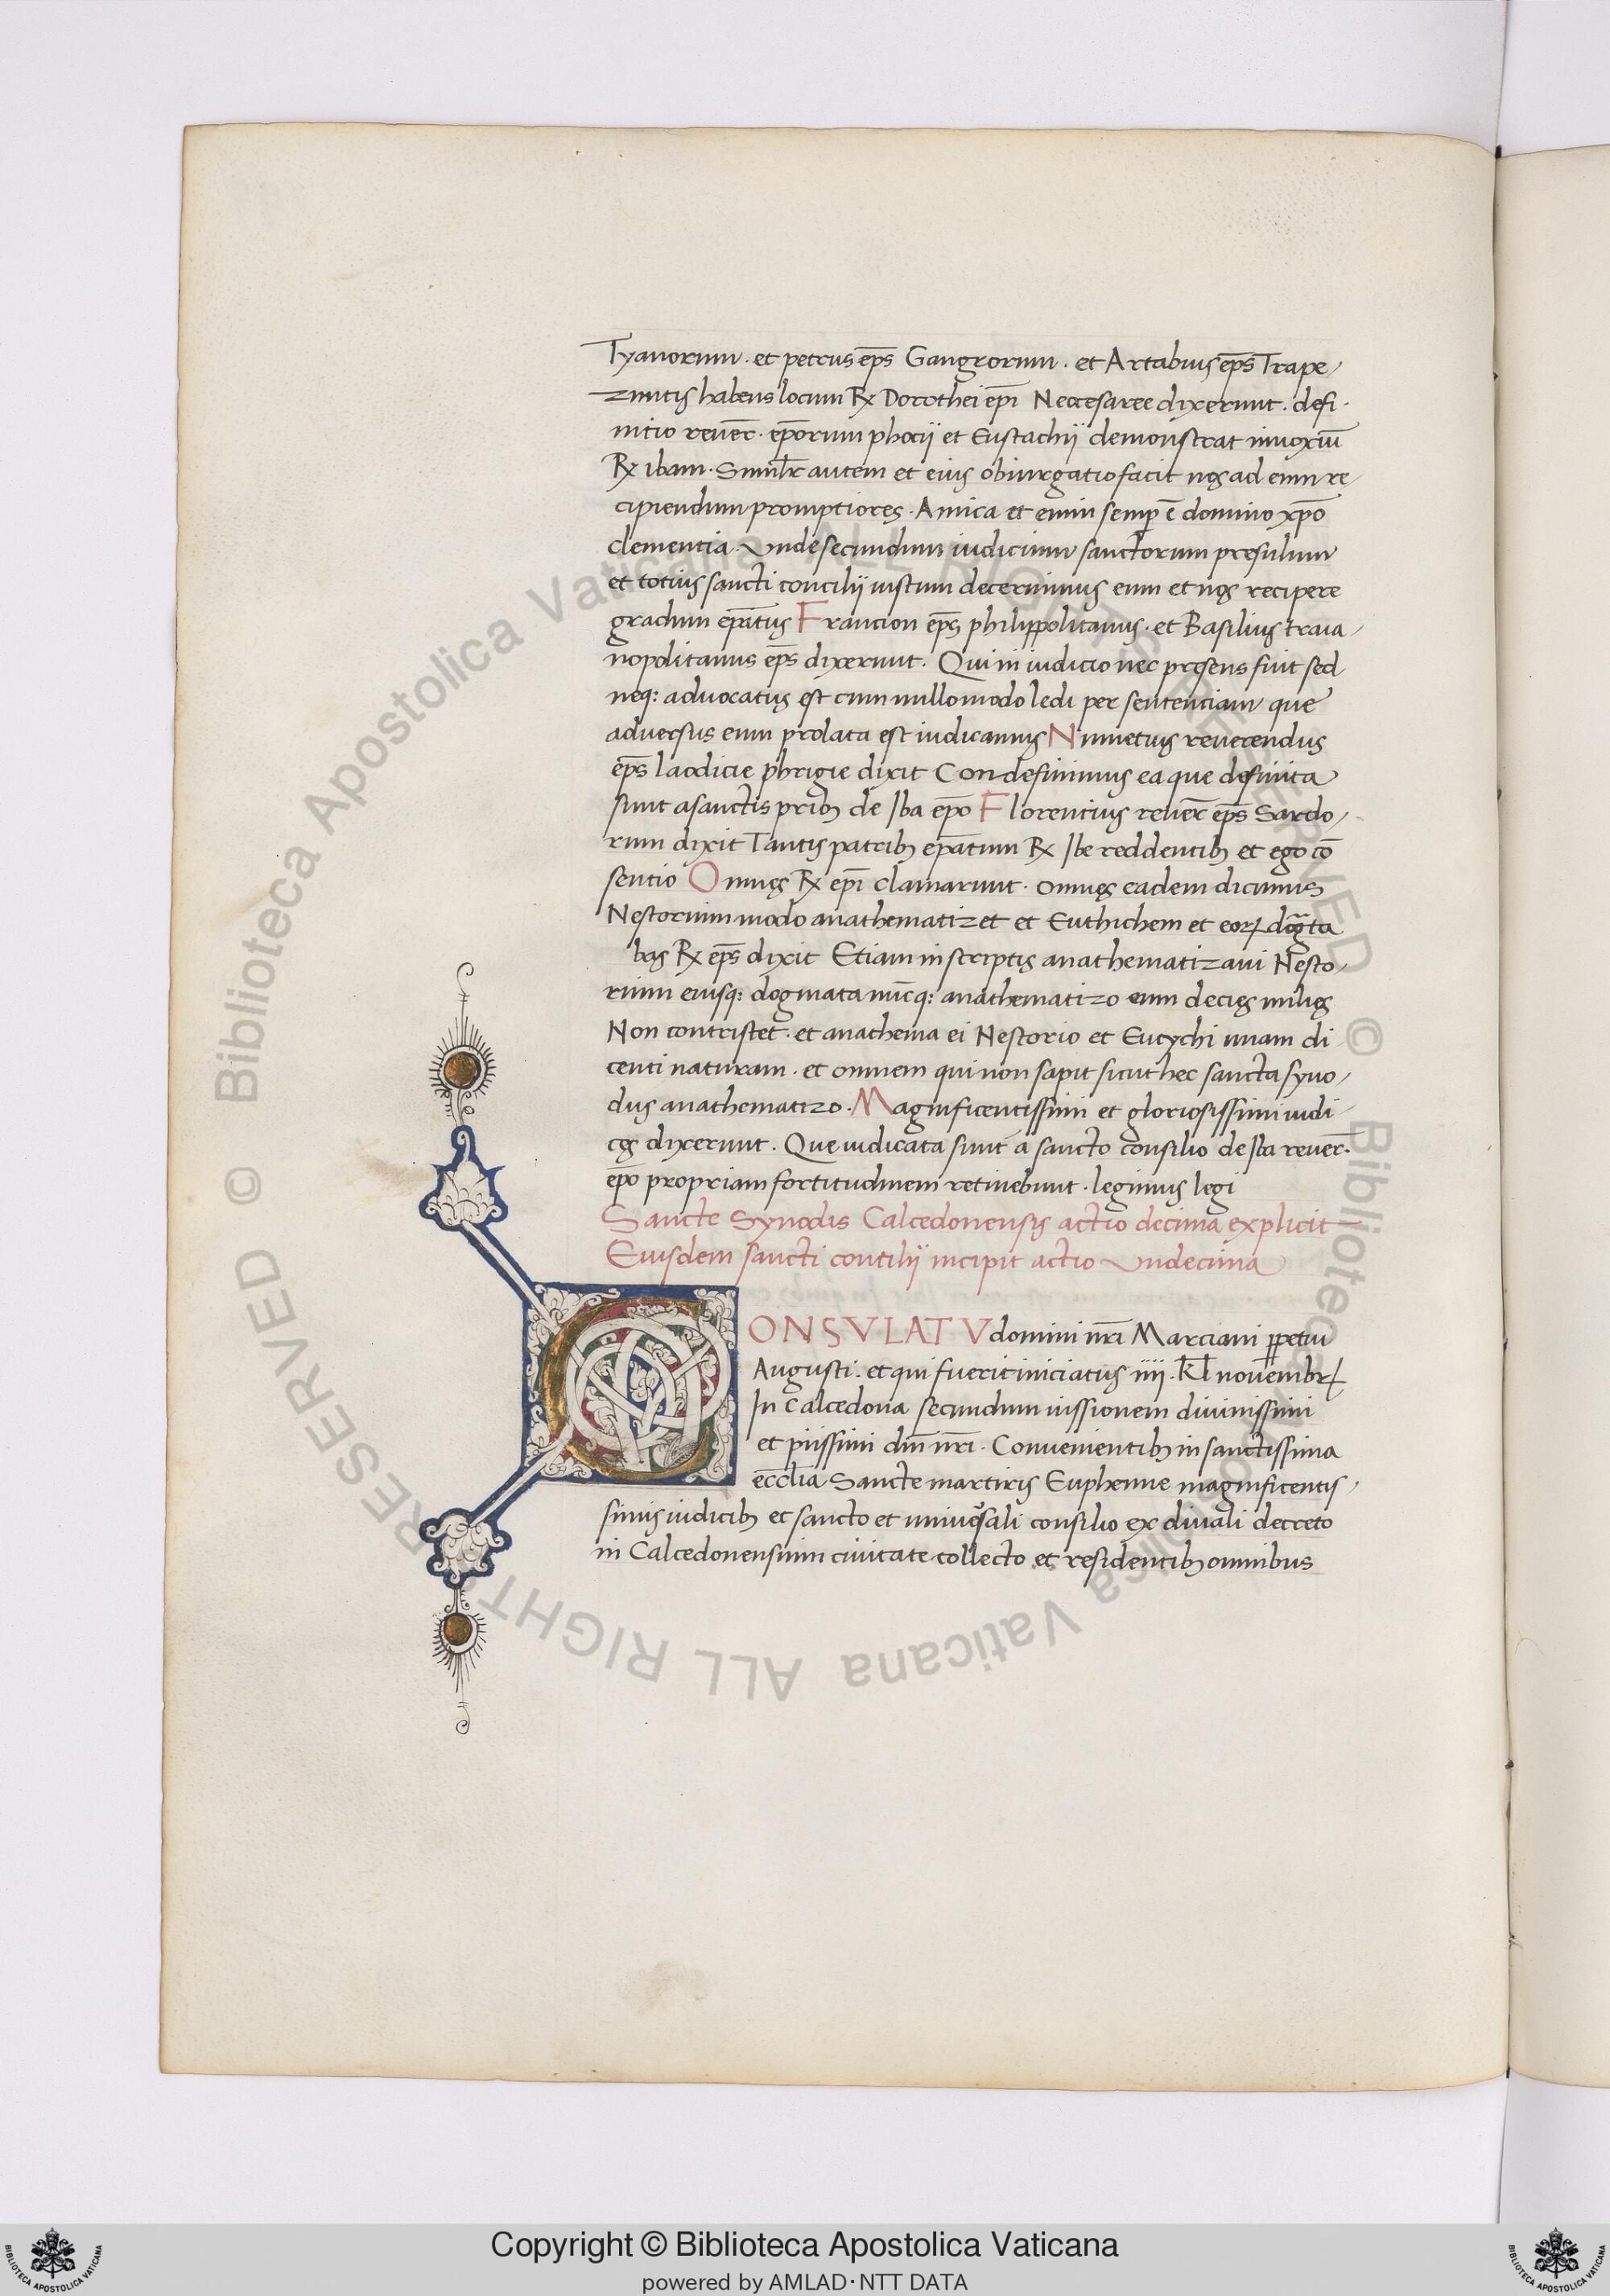 Tyanorum · et petrus ep̄s Gangrorum · et Artabius ep̄s Trape
zuntis habens locum R̵ Dorothei ep̄i Neocesaree dixerunt · defi
nitio reuer̄ · ep̄orum photii et Eustachii demonstrat innoxiū
R̵ ibam · Simil̄r autem et eius obiurgatio facit nos ad eum re
cipiendum promptiores · Amica et enim semp̱ ē domino xp̄o
clementia · Unde secundum iudicium sanctorum presulum
et totius sancti concilii iustum decernimus eum et nos recipere
gradum ep̄atus Francion ep̄s philippolitanus · et Basilius traia
nopolitanus ep̄s dixerunt · Qui in iudicio nec presens fuit sed
neq: aduocatus est eum nullo modo ledi per sentenciam que
aduersus eum prolata est iudicamus Nunnetius reuerendus
ep̄s laodicie phrigie dixit Condefinimus ea que definita
sunt a sanctis prib; de Iba ep̄o Florentius reuer̄ ep̄s Sardo
rum dixit Tantis patrib; ep̄atum R̵ Ibe reddentib; et ego cō
sentio Omnes R̵ ep̄i clamarunt · omnes eadem dicimus
Nestorium modo anathematizet et Euthichem et eoꝝ dog̃ta
bas R̵ ep̄s dixit Etiam in scriptis anathematizaui Nesto
rium eiusq: dogmata nūcq: anathematizo eum decies milies
Non contristet · et anathema ei Nestorio et Eutychi unam di
centi naturam · et omnem qui non sapit sicut hec sancta syno
dus anathematizo · Magnificentissimi et gloriosissimi iudi
ces dixerunt · Que iudicata sunt a sancto consilio de Iba reuer̄ ·
ep̄o propriam fortitudinem retinebunt · legimus legi
Sancte Synodis Calcedonensis actio decima explicit
Eiusdem sancti contilii incipit actio Undecima
CONSVLATV domini nr̄i Marciani ꝑpetui
Augusti · et qui fuerit iniciatus iiii · Kl̄ nouembrꝝ
In Calcedona secundum iussionem diuinissimi
et piissimi dn̄i nr̄i · Conuenientib; in sanctissima
eccl̄ia Sancte martiris Euphemie magnificentis
simis iudicib; et sancto et uniuersali consilio ex diuali decreto
in Calcedonensium ciuitate collecto et residentib; omnibus
© Biblioteca Apostolica Vaticana ALL RIGHTS RESERVED
© Biblioteca Apostolica Vaticana ALL RIGHTS RESERVED
Copyright © Biblioteca Apostolica Vaticana
powered by AMLAD・NTT DATA
BIBLIOTECA APOSTOLICA VATICANA
BIBLIOTECA APOSTOLICA VATICANA